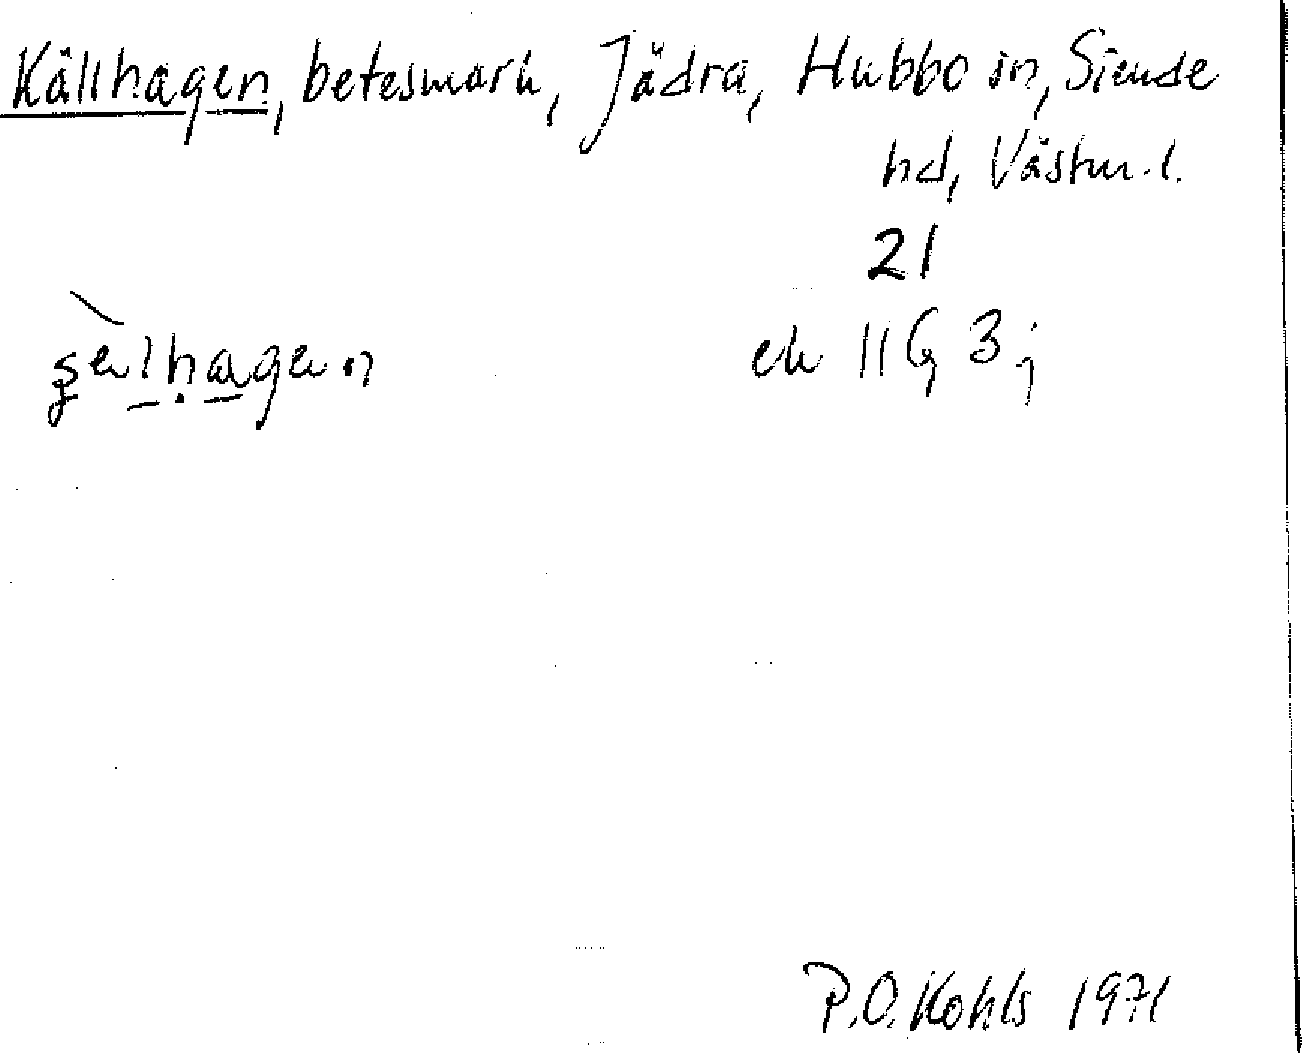 Källhagen, betesmark, Jädra, Hubbo sn, Siende
hd, Västm. l.
21
ek 11G 3j
P.O. Kohls 1971